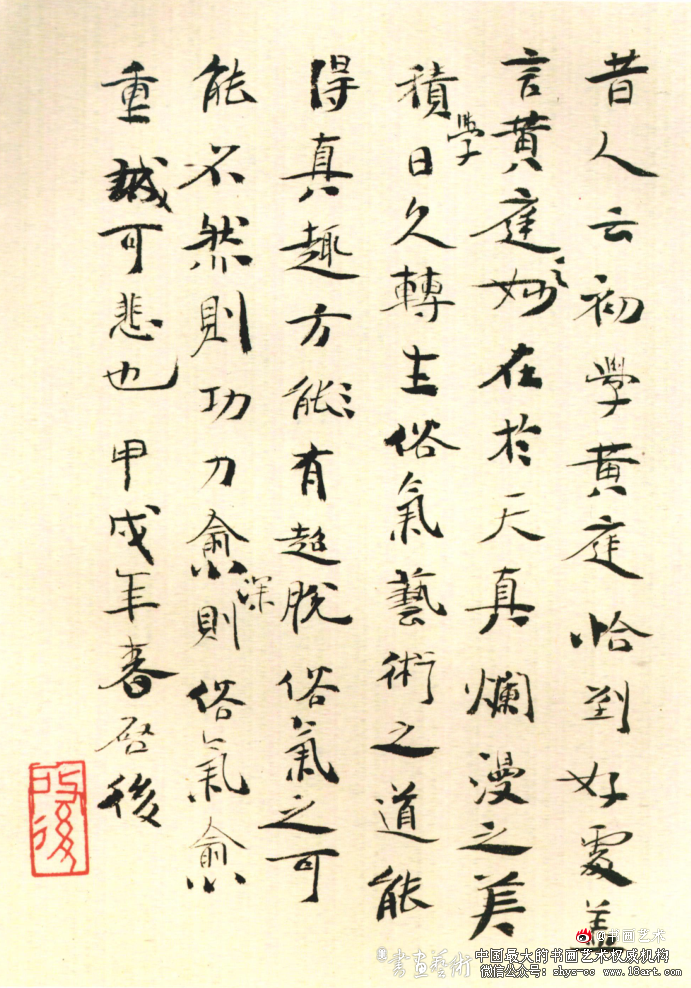 昔人云初學黄庭恰到好處蓋
言黄庭之妙在於天真爛漫之美
積學日久轉生俗氣藝術之道能
得真趣方能有超脱俗氣之可
能不然則功力愈深則俗氣愈
重誠可悲也 甲戌年春启後
啟後
@书画艺术
書画藝術
中国最大的书画艺术权威机构
微信公众号: shys-cc www.18art.com